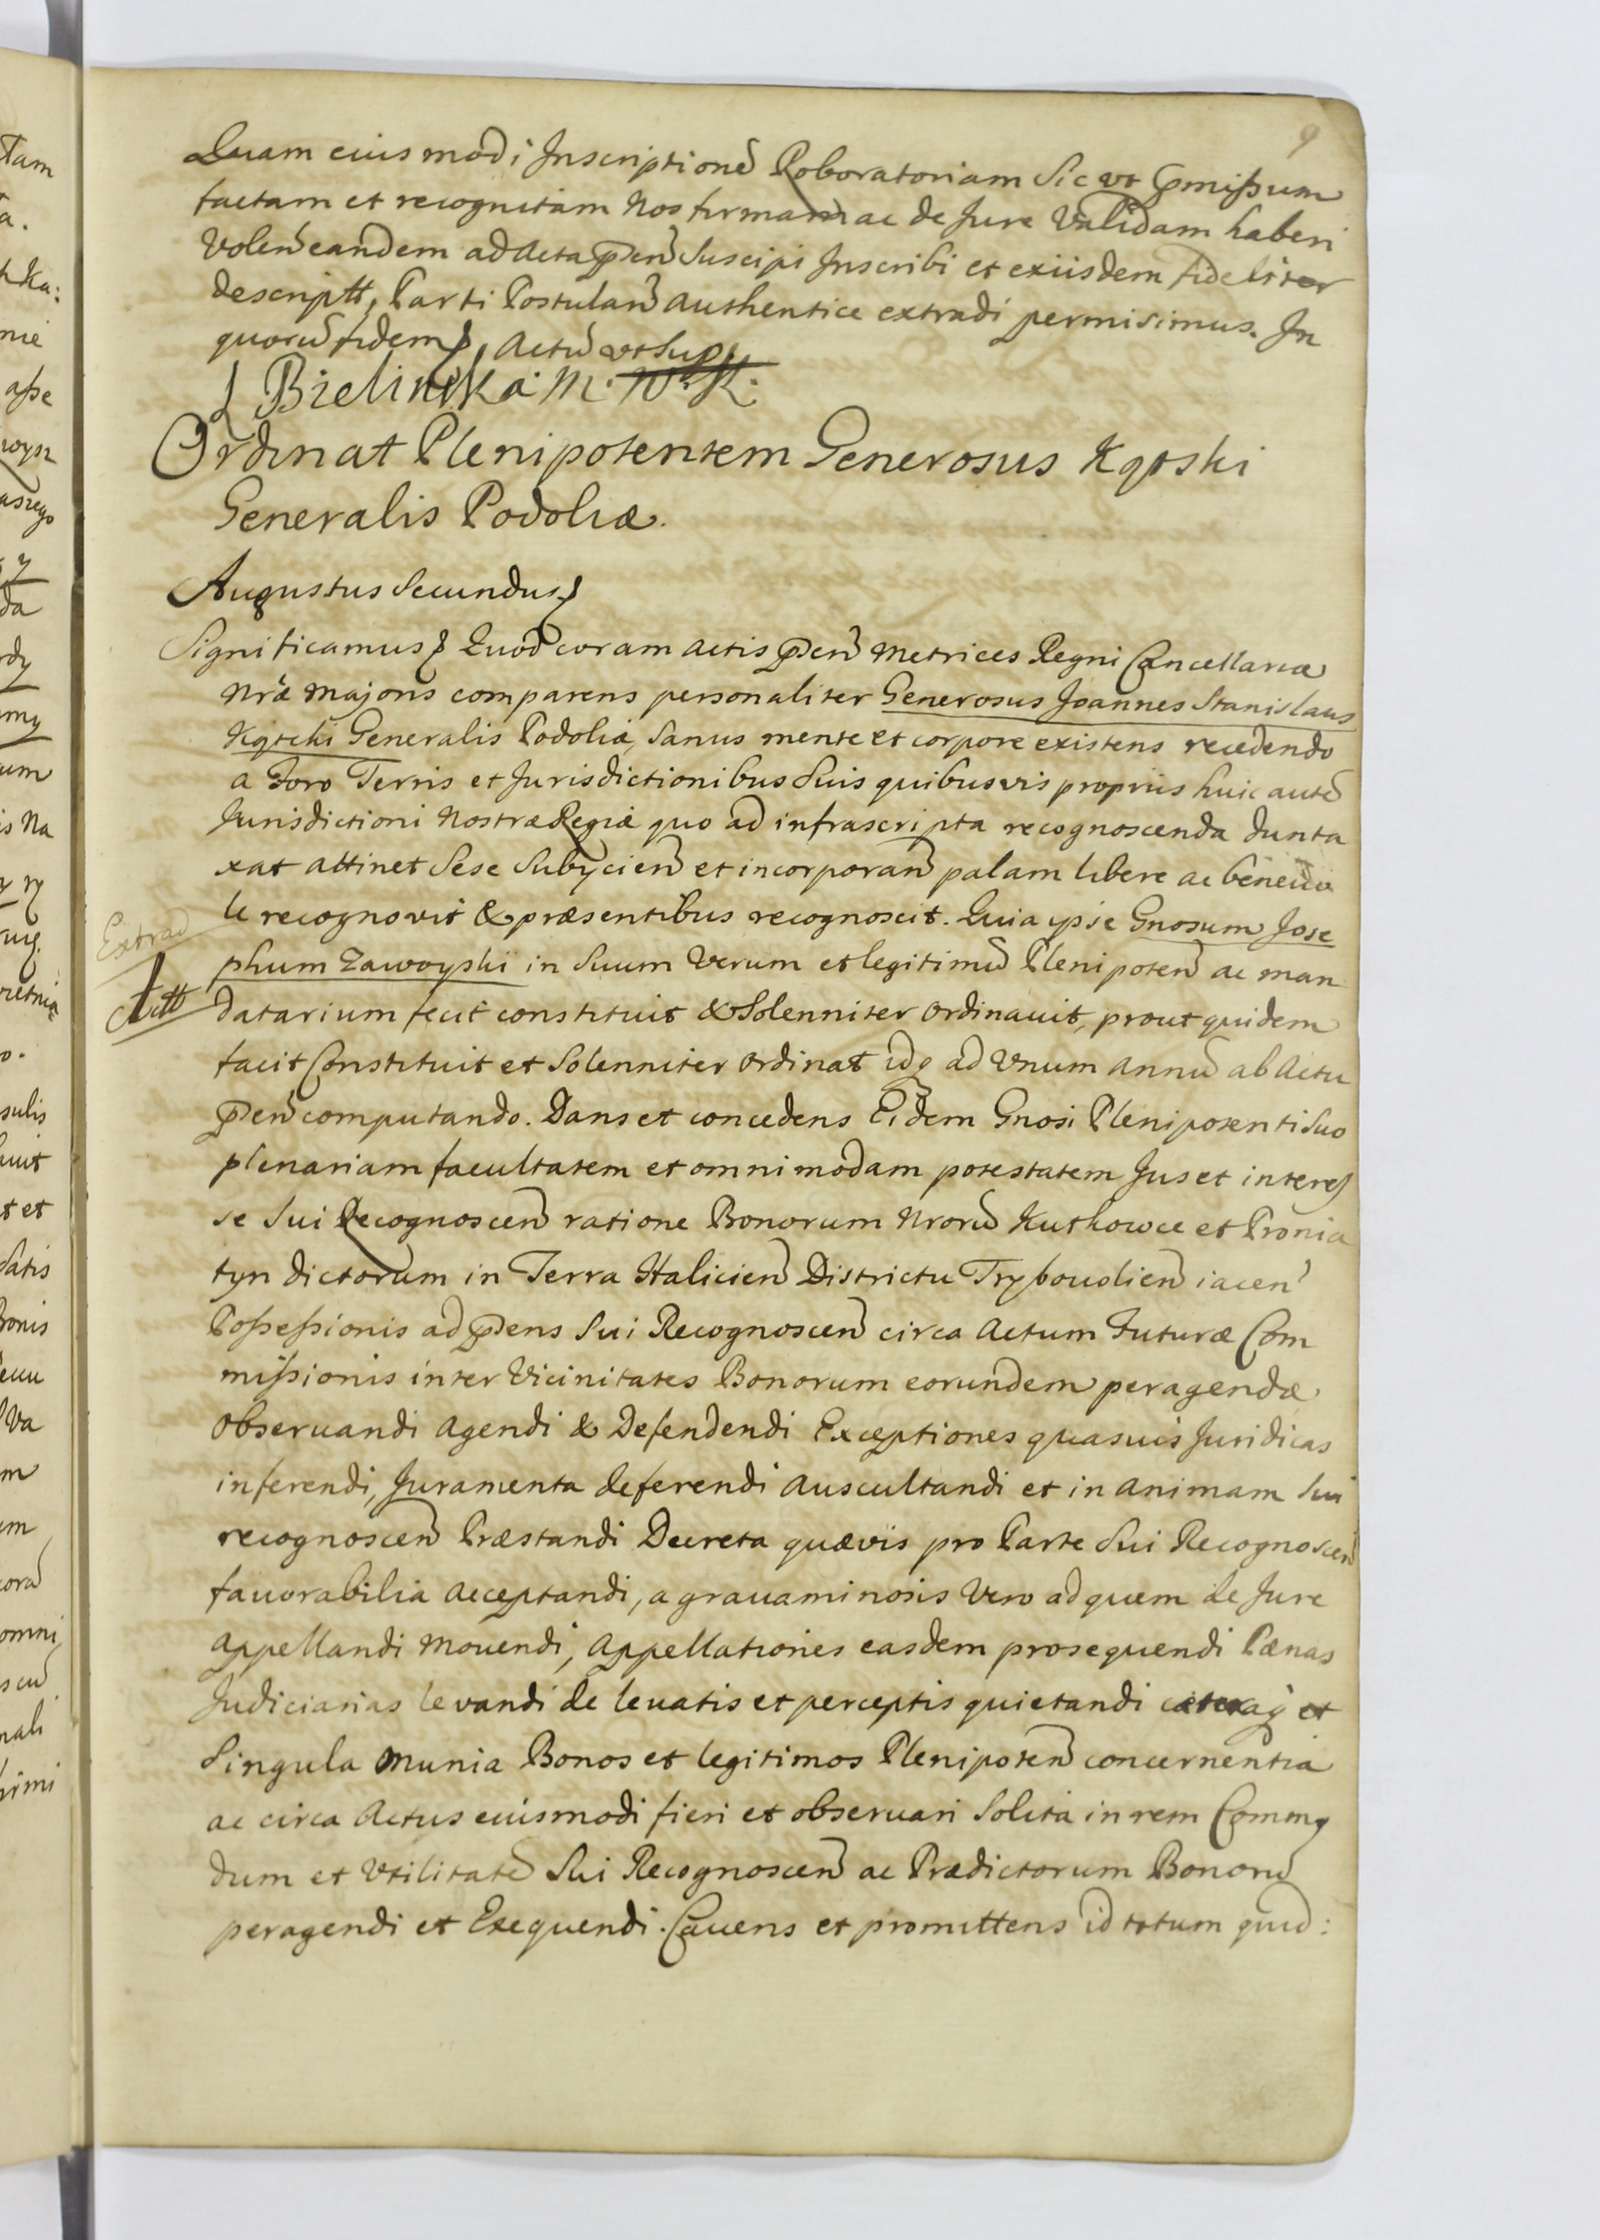 9
Quam eiusmodi Inscriptione Roboratoriam Sic vt pmissum
factam et recognitam Nos firmam ac de Jure Validam haberi
Volen eandem ad Acta pen Suscipi Inscribi et exiisdem fideliter
descriptt, Parti Postulan Authentice extradi permisimus. In
quoru fidem Actu vt Sup.
J Bielinski M. W. K.
Ordinat Plenipotentem Generosus Kątski
Generalis Podoliæ.
Augustus Secundus
Significamus Quod coram Actis pen Metrices Regni Cancellariæ
Nræ Majoris comparens personaliter Generosus Joannes Stanislaus
Kątski Generalis Podoliæ, Sanus mente et corpore existens recedendo
a Foro Terris et Jurisdictionibus Suis quibusvis propriis huic aute
Jurisdictioni Nostræ Regiæ quo ad infrascripta recognoscenda dunta
xat attinet Sese Subycien et incorporan palam libere ac benevo
le recognovit & præsentibus recognoscit. Quia ipse Gnosum Jose
Extrad
phum Zawoyski in Suum Verum et legitimu Plenipoten ac man
datarium fecit constituit & Solenniter Ordinauit, prout quidem
facit Constituit et Solenniter Ordinat idq ad Vnum Annu ab Actu
pen computando. Dans et concedens Eidem Gnosi Plenipotenti Suo
plenariam facultatem et omnimodam potestatem Jus et interes
se Sui Recognoscen ratione Bonorum Nroru Kutkowce et Pronia
tyn dictorum in Terra Halicien Districtu Trybouolien iacen
Possessionis ad pens Sui Recognoscen circa Actum Futuræ Com
missionis inter Vicinitates Bonorum eorundem peragendæ
Obseruandi Agendi & Defendendi Exceptiones quasuis Juridicas
inferendi, Juramenta deferendi Auscultandi et in Animam Sui
recognoscen Præstandi Decreta quævis pro Parte Sui Recognoscen
fauorabilia Acceptandi, a grauaminosis Vero ad quem de Jure
Appellandi Mouendi, Appellationes easdem prosequendi Pænas
Judiciarias levandi de leuatis et perceptis quietandi cæteraq et
Singula Munia Bonos et legitimos Plenipoten concernentia
ac circa Actus eiusmodi fieri et obseruari Solita in rem Commo
dum et Vtilitate Sui Recognoscen ac Prædictorum Bonoru
peragendi et Exequendi. Cauens et promittens id totum quid: